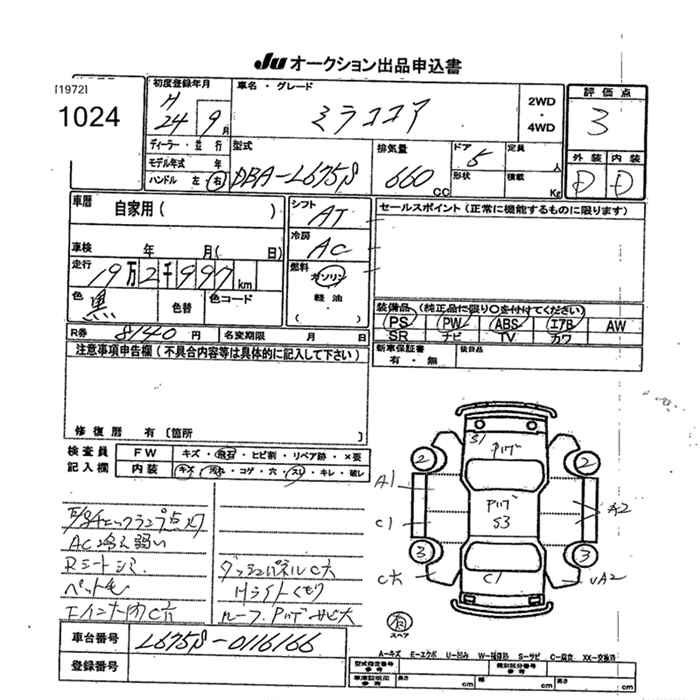 JU オークション出品申込書
[1972]
1024
初度登録年月
H
24年 9月
車名・グレード
ミラココア
2WD
・
4WD
評価点
3
ディーラー・並行
モデル年式 年
ハンドル 左・右
型式
DBA-L675S
排気量
660 CC
ドア 5
形状
定員 人
積載 Kg
外装 内装
D D
車歴
自家用( )
車検 年 月( 日)
走行
19万2千997km
色 黒 色替 色コード
シフト
AT
冷房
AC
燃料
ガソリン
・
軽油
・
( )
セールスポイント(正常に機能するものに限ります)
装備品(純正品に限り○を付けてください)
PS PW ABS エアB AW
SR ナビ TV カワ
新車保証書
有・無
後日品
R券 8140円 名変期限 月 日
注意事項申告欄(不具合内容等は具体的に記入して下さい)
修復歴 有〔箇所
検査員
記入欄
FW キズ・飛石・ヒビ割・リペア跡・×要
内装 キズ・汚れ・コゲ・穴・スレ・キレ・破レ
E/Gチェックランプ点灯
AC冷え弱い
Rシートシミ
ペット毛
ダッシュパネルC大
Hライトくもり
ルーフ.Pハゲサビ大
S1
Pハゲ
2 2
A1
Pハゲ
S3
C1
3 3
C大
C1
スペア
車台番号 L675S-0116166
登録番号
A-キズ E-エクボ U-凹み W-補修跡 S-サビ C-腐食 XX-交換済
型式指定番号
参考
類別区分番号
参考
車庫証明用
参考
長さ cm
幅 cm
高さ cm